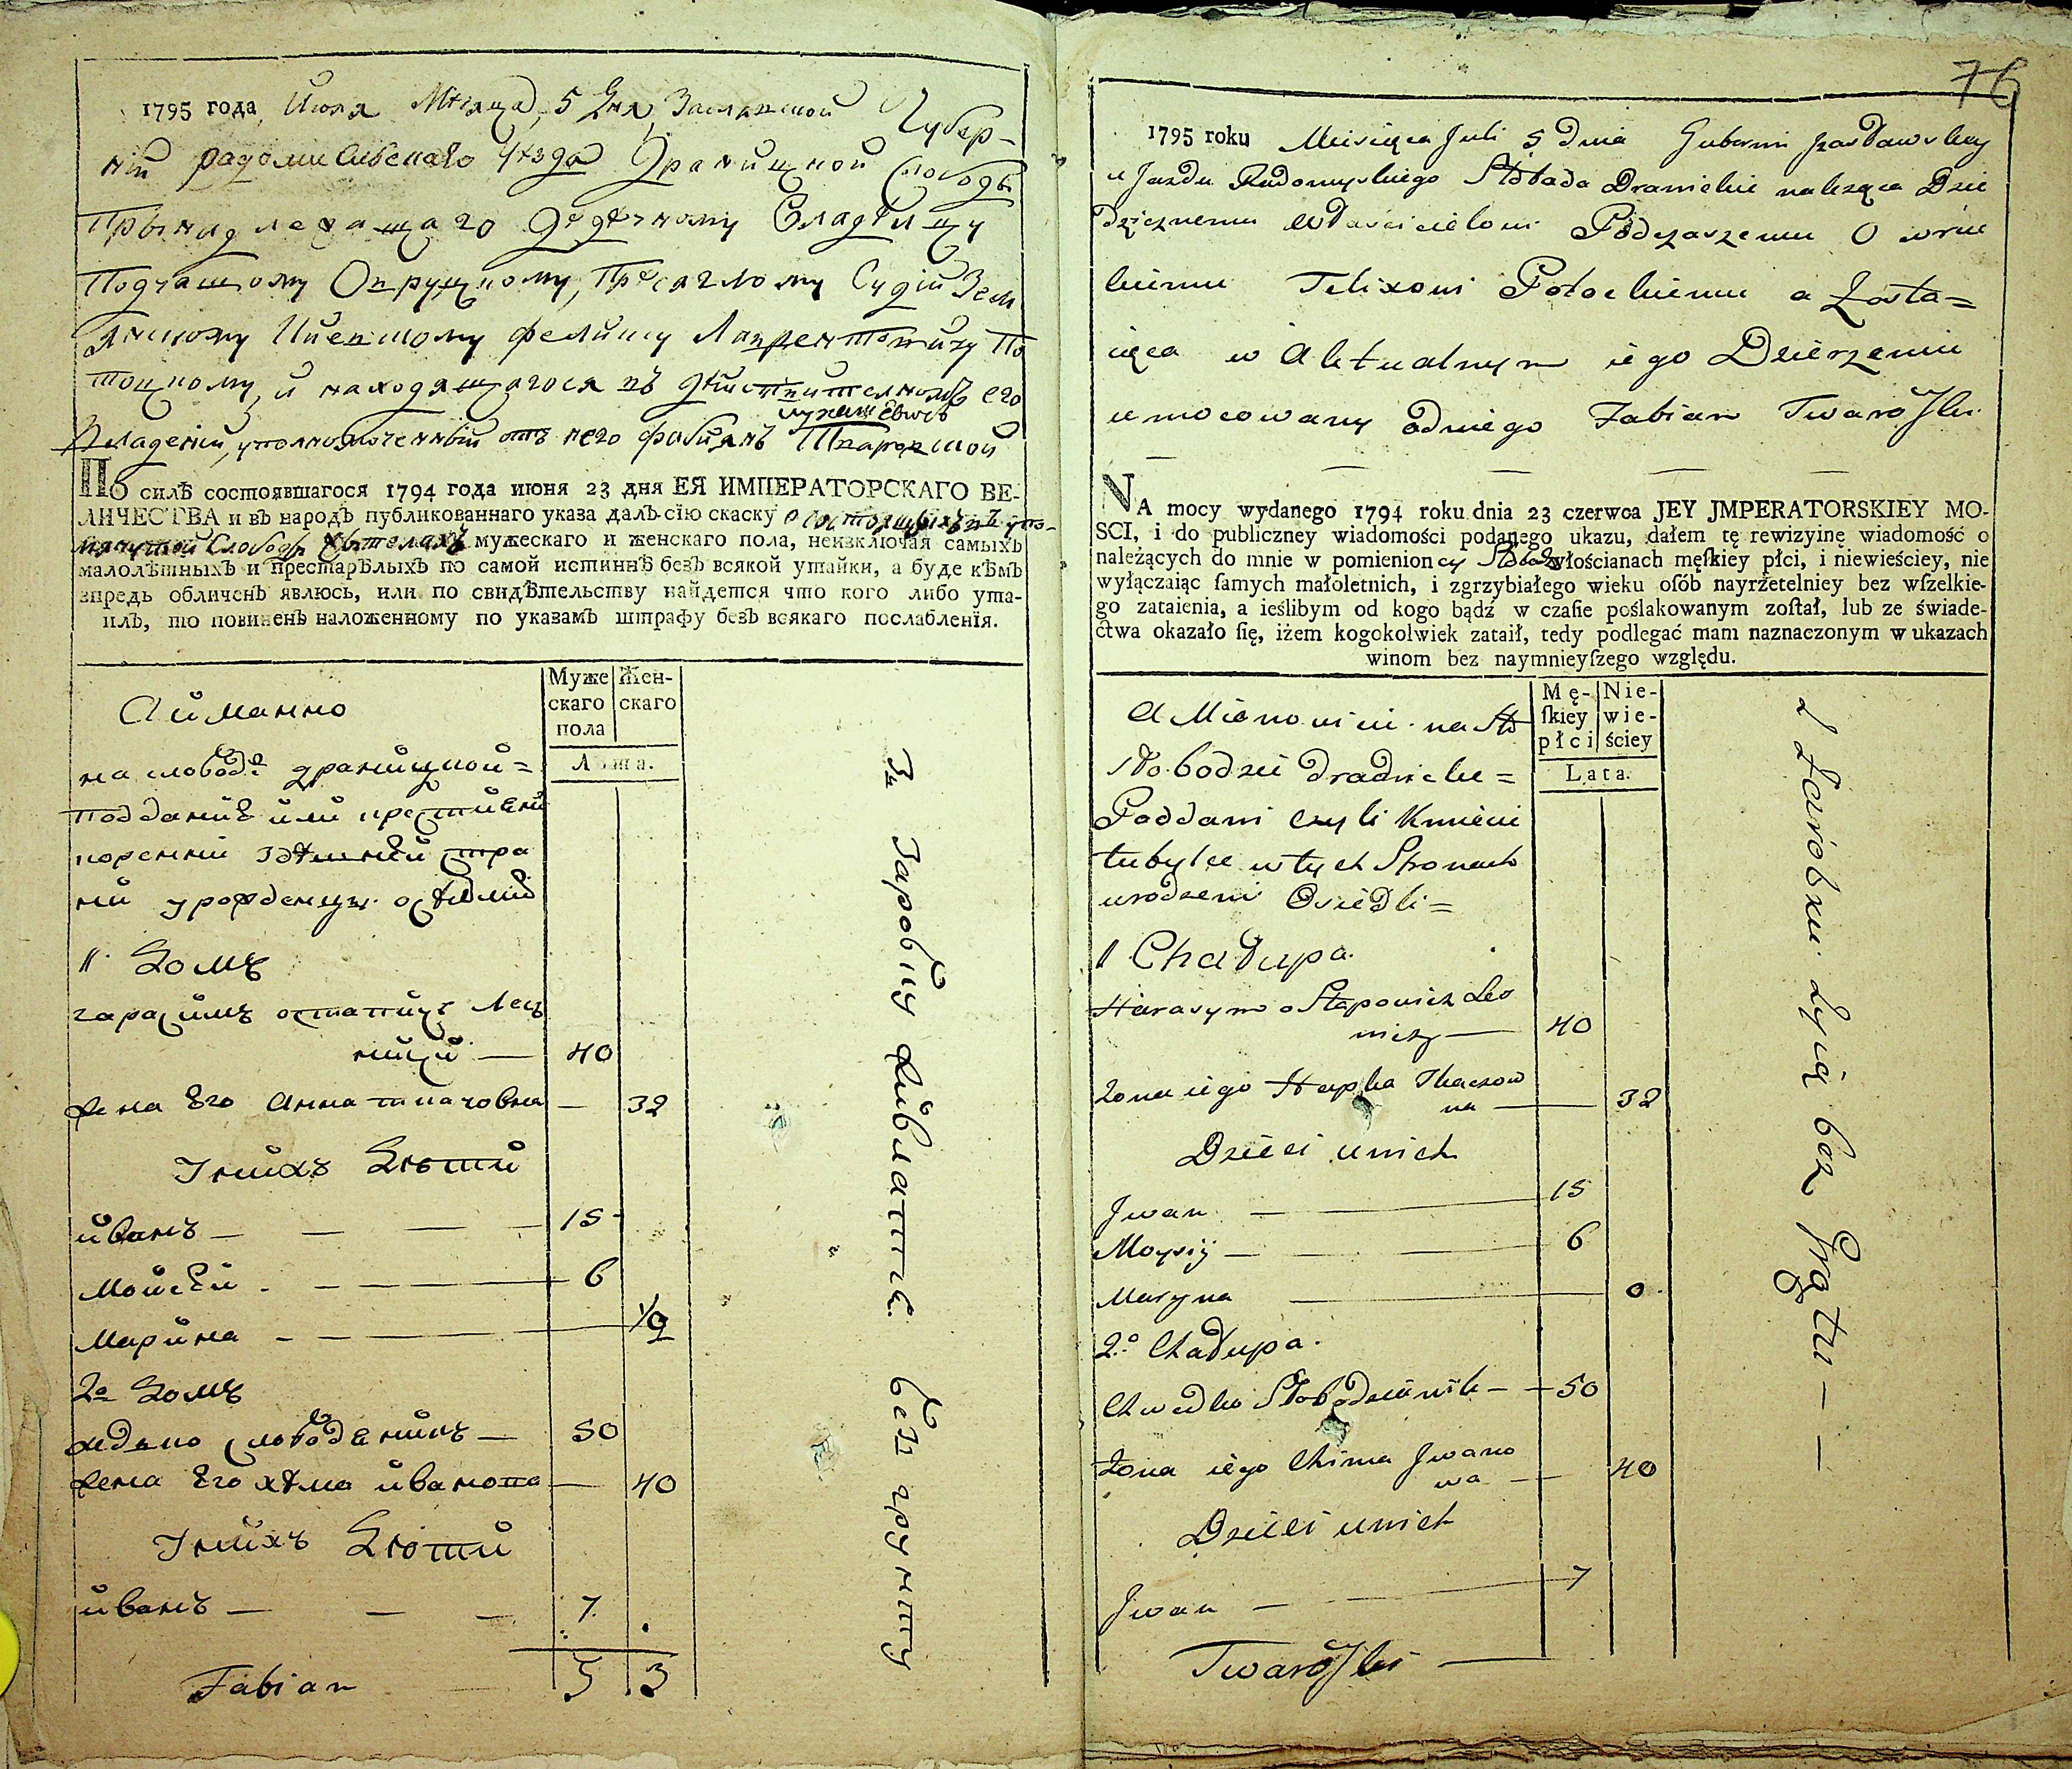 1795 года Июля Мѣсяца 5 Дня, Заславской Губер-
ніи радомисльскаго уѣзда Драницкой Слободы
Принадлежащаго Дедичному Владѣлцу
Подчашому Овруцкому, Присяглому Судіи Зем
янскому Иневшому феликсу Лаврентовичу По
тоцкому, и находящагося въ дѣиствителномъ его
лукашевъ сынъ
Владеніи, уполномоченный отъ него фабиянъ Тваровской
ПО силѣ состоявшагося 1794 года июня 23 дня ЕЯ ИМПЕРАТОРСКАГО ВЕ-
ЛИЧЕСТВА и въ народъ публикованнаго указа далъ сію скаску о состоящихъ въ упо-
мянутой Слободѣ жителахъ мужескаго и женскаго пола, неизключая самыхъ
малолѣтныхъ и престарѣлыхъ по самой истиннѣ безъ всякой утайки, а буде кѣмъ
впредь обличенъ явлюсь, или по свидѣтельству найдется что кого либо ута-
илъ, то повиненъ наложенному по указамъ штрафу безъ всякаго послабленія.
Муже скаго пола
Жен- скаго
Лѣта.
А именно
на слободѣ драницкой =
подданіе или крестияни
коренніи здѣшнѣй стра
ни урожденцы осѣдліи
1. Домъ
гарасимъ остапичъ Лев
ницкій — 40
жена Его Анна ткачовна — 32
У нихъ Дѣти
иванъ — — — 15
Мойсѣи — — — 6
Марина — — — 1/2
2о Домъ
хедько слободеникъ — 50
жена Его хѣма иванова — 40
У нихъ Дѣти
иванъ — — — 7.
5 3
Fabian
За заробку живлатъ безъ грунту
76
1795 roku Miesięca Juli 5 dnia Guberni Zasławskiey
u Jazdu Radomyslkiego Słoboda Dranickie należąca Dzie
dzicznemu Włascicielowi Podczaszemu Owruc
kiemu Felixowi Potockiemu a Zosta=
iąca w Aktualnym iego Dzierzeniu
umocowany odniego Fabian Twarosski
NA mocy wydanego 1794 roku dnia 23 czerwca JEY JMPERATORSKIEY MO-
SCI, i do publiczney wiadomości podanego ukazu, dałem tę rewizyinę wiadomość o
należących do mnie w pomienioney Słobodzie włościanach męſkiey płci, i niewieściey, nie
wyłączaiąc ſamych małoletnich, i zgrzybiałego wieku oſób nayrzetelniey bez wſzelkie-
go zataienia, a ieślibym od kogo bądź w czaſie poślakowanym zoſtał, lub ze świade-
ctwa okazało ſię, iżem kogokolwiek zataił, tedy podlegać mam naznaczonym w ukazach
winom bez naymnieyſzego względu.
Mę- ſkiey płci
Nie- wie- ściey
Lata.
A Mianowicie na Sło
Słobodzie Dranickie =
Poddani czyli Kmieci
tubylce w tych Stronach
urodzeni Osiedli =
1 Chałupa.
Harasym Ostapowicz Lev
nicky — 40
Zona iego Hapka Tkaczow
na — 32
Dzieci unich
Jwan — 15
Moysiy — 6
Maryna — 0
2.o Chałupa.
Chwedko Słobodzienik — 50
Zona iego Chima Jwano
wa — 40
Dzieci unich
Jwan — 7
Twarosski —
z Zarobku Zyią bez Grątu — —